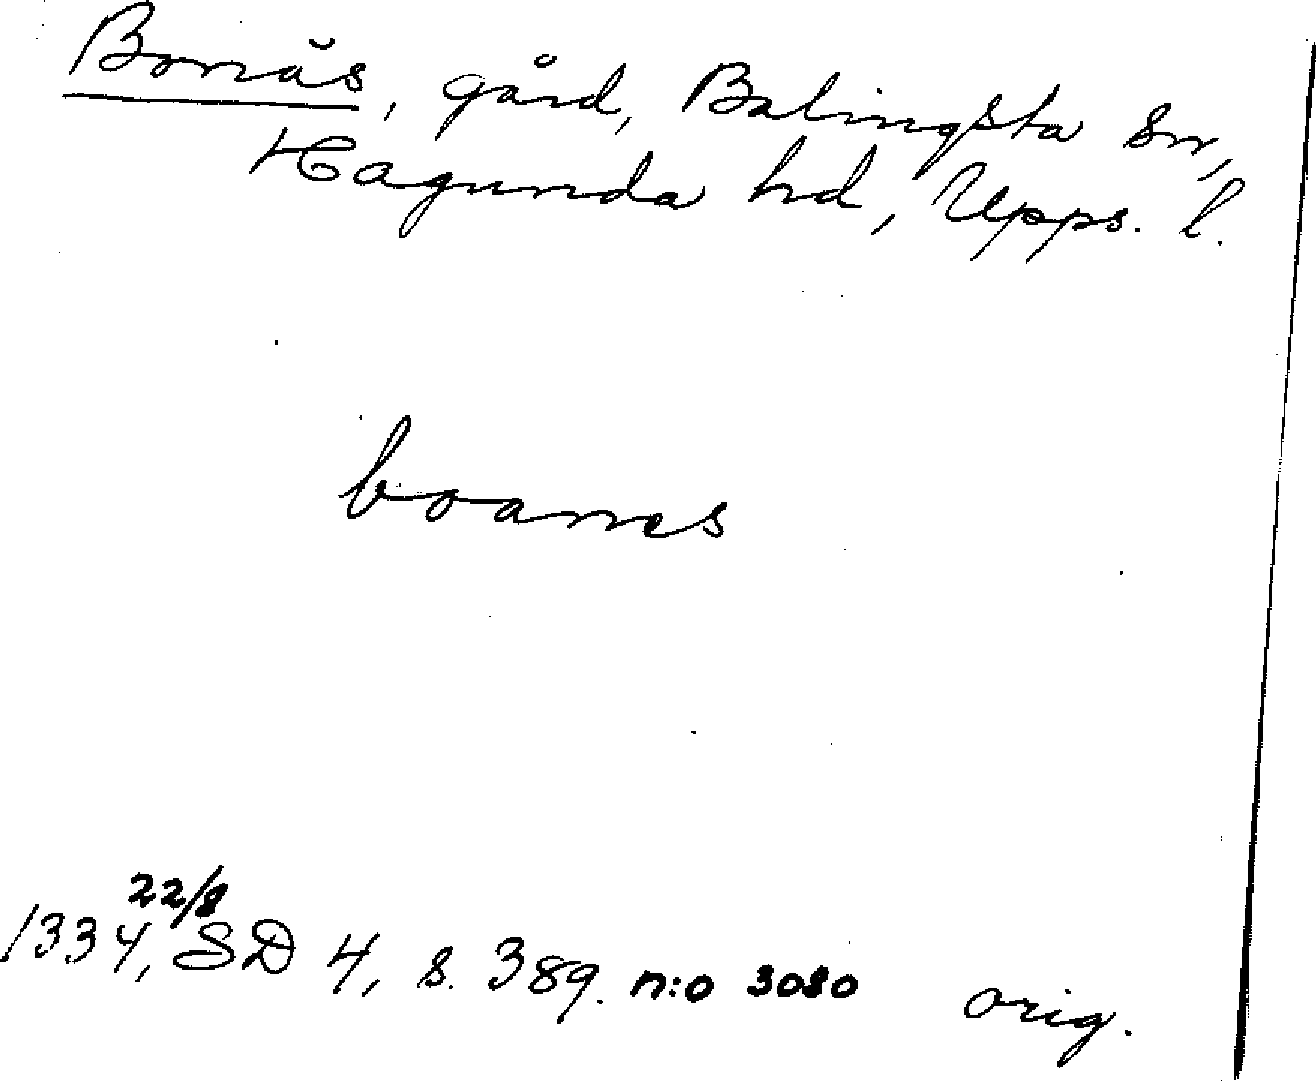 Bonäs, gård, Balingsta sn,
Hagunda hd, Upps. l.
boanes
22/8
1334, SD 4, s. 389. n:o 3080 orig.